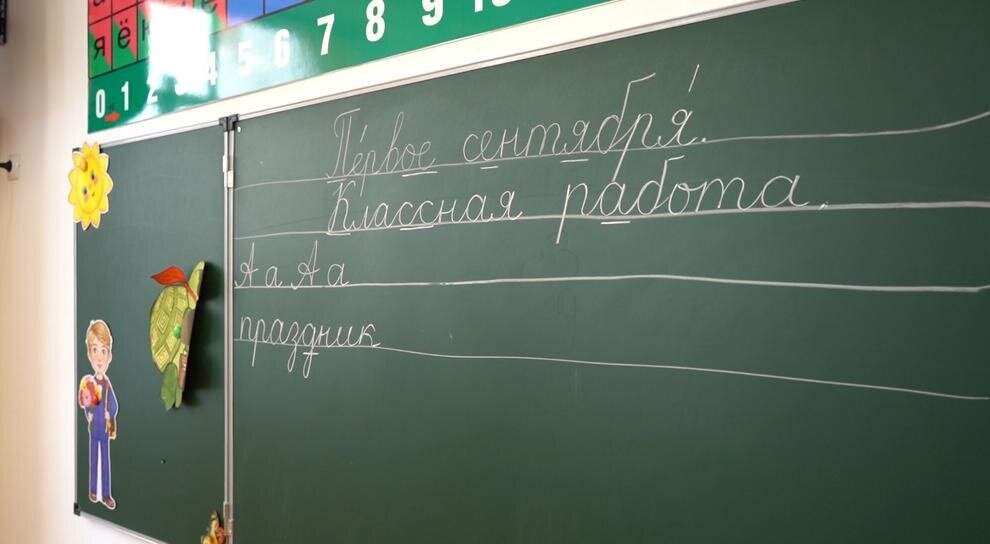 я ё
0 1 2 3 4 5 6 7 8 9 10
Пе́рвое сентября́.
Классная работа.
Аа Аа
праздник